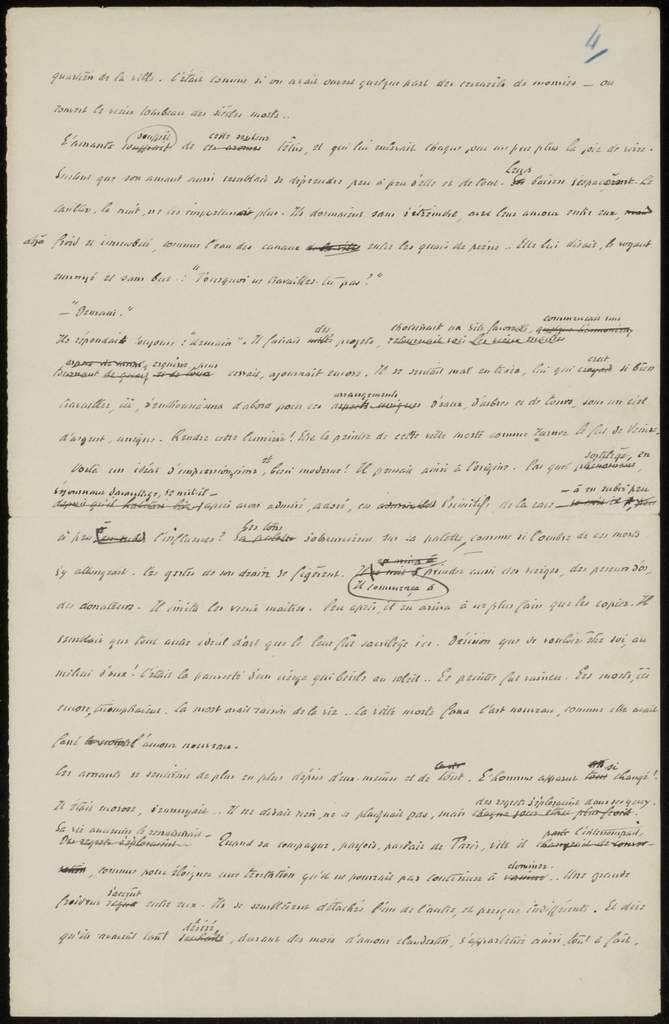 4
quartiers de la ville. C'était comme si on avait ouvert quelque part des cercueils de momies — ou
rouvert le vieux tombeau des siècles morts..
L'amante souffrit de cette senteur, et qui lui enlevait chaque jour un peu plus la joie de vivre.
Surtout que son amant aussi semblait se déprendre peu à peu d'elle et de tout. Leurs baisers s'espacèrent. Le
cantique, la nuit, ne les importunait plus. Ils dormaient sans s'étreindre, avec leur amour entre eux,
déjà froid et immobile, comme l'eau des canaux entre les quais de pierre.. Elle lui disait, le voyant
ennuyé et sans but : "Pourquoi ne travailles-tu pas?"
— "Demain."
Il répondait toujours "demain". Il faisait des projets, choisissait un site favorable, commençait une
esquisse, puis cessait, ajournait encore. Il se sentait mal en train, lui qui crut si bien
travailler, ici, s'enthousiasma d'abord pour ces arrangements d'eaux, d'arbres et de tours, sous un ciel
d'argent, unique. Rendre cette lumière! Être le peintre de cette ville morte comme Turner le fut de Venise.
Voilà un idéal d'impressionnisme, et bien moderne! Il pensait ainsi à l'origine. Par quel sortilège, en
séjournant davantage, et après avoir admiré, adoré, les Primitifs de la race — à en subir peu
à peu l'influence? Les tons s'obscurcirent sur sa palette, comme si l'ombre de ces morts
s'y allongeait. Les gestes de son dessin se figèrent. Il commença à peindre aussi des vierges, des peseurs d'or,
des donateurs. Il imita les vieux maîtres. Peu après, il en arriva à ne plus faire que les copier. Il
semblait que tout autre idéal d'art que le leur fût sacrilège ici. Dérision que de vouloir être soi, au
milieu d'eux! C'était la pauvreté d'un cierge qui brûle au soleil.. Le peintre fut vaincu. Les morts, ici
encore, triomphaient. La mort avait raison de la vie.. La ville morte fana l'art nouveau, comme elle avait
fané l'amour nouveau.
Les amants se sentaient de plus en plus dépris d'eux-mêmes et de tout. L'homme apparut si changé!
Il était morose, s'ennuyait.. Il ne disait rien, ne se plaignait pas, mais des regrets s'éploraient dans ses yeux.
Sa vie ancienne le ressaisissait. Quand sa compagne, parfois, parlait de Paris, vite il l'interrompait,
comme pour éloigner une tentation qu'il ne pourrait pas continuer à dominer.. Une grande
froideur s'accrut entre eux. Ils se semblèrent détachés l'un de l'autre, et presque indifférents. Et dire
qu'ils avaient tant désiré, durant des mois d'amour clandestin, s'appartenir ainsi, tout à fait,